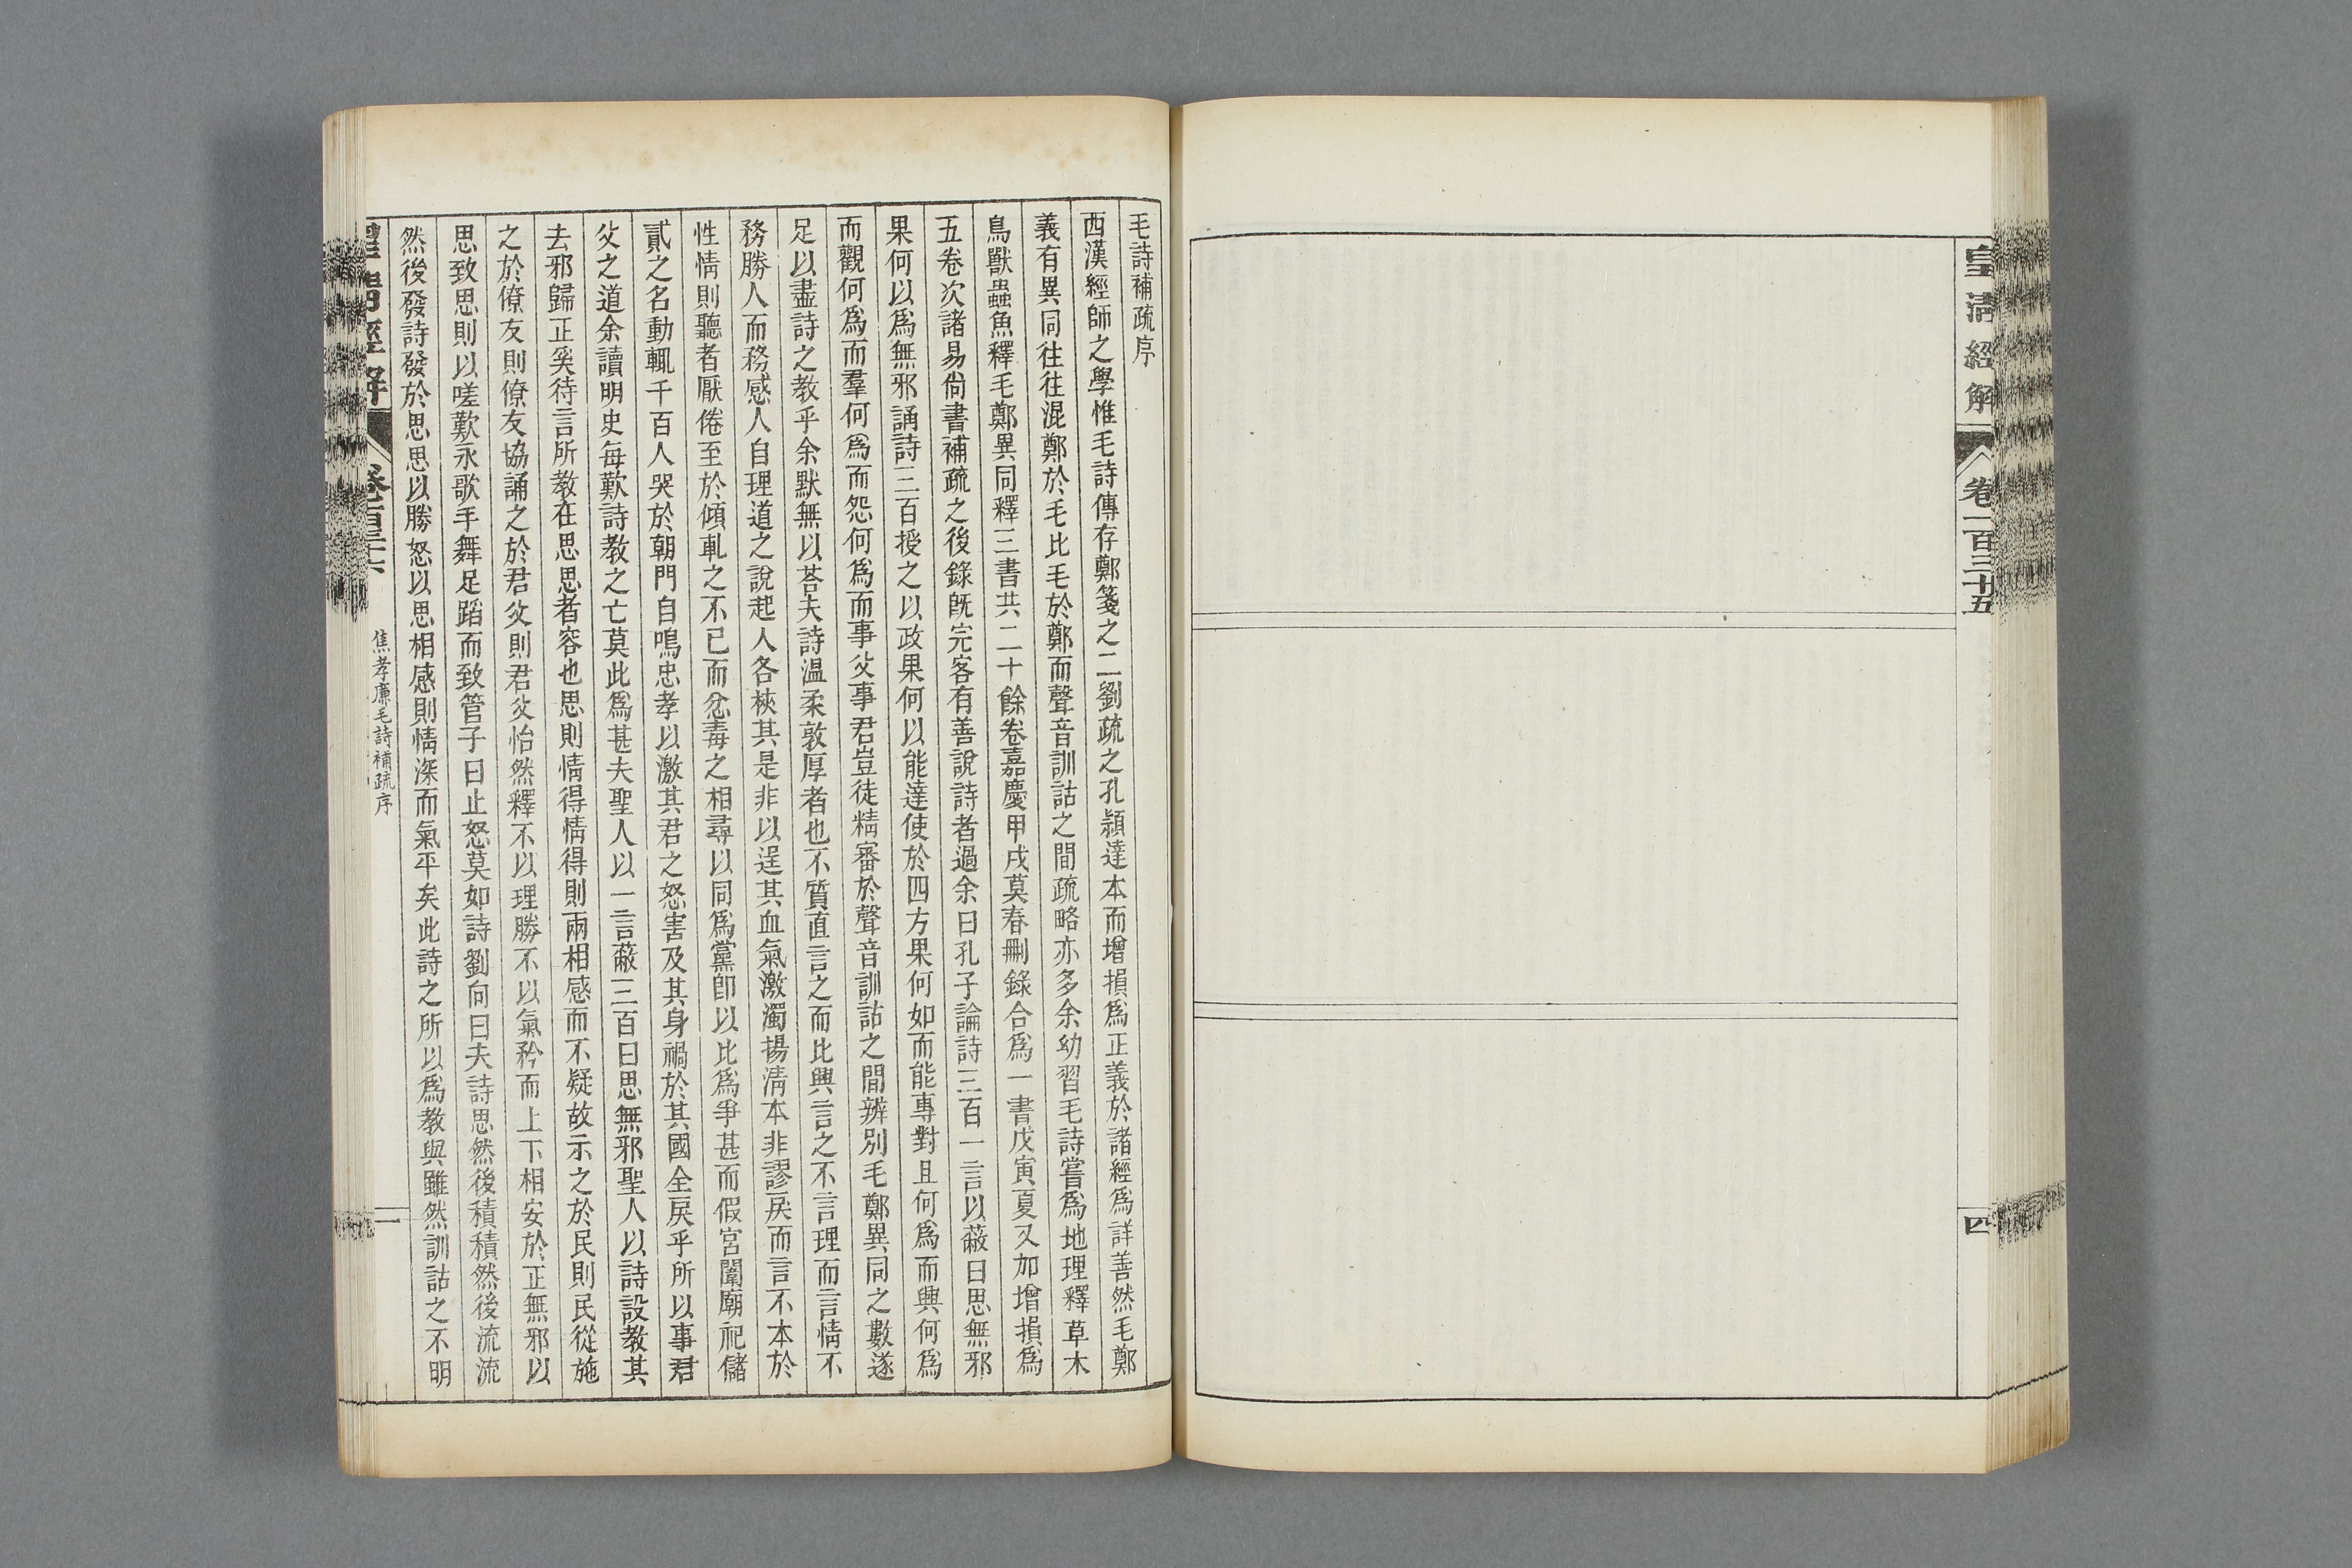 皇清經解
卷一百三十五
四
毛詩補疏序
西漢經師之學惟毛詩傳存鄭箋之二劉疏之孔頴達本而增損爲正義於諸經爲詳善然毛鄭
義有異同往往混鄭於毛比毛於鄭而聲音訓詁之間疏略亦多余幼習毛詩嘗爲地理釋草木
鳥獸蟲魚釋毛鄭異同釋三書共二十餘卷嘉慶甲戌莫春刪錄合爲一書戊寅夏又加增損爲
五卷次諸易尙書補疏之後錄旣完客有善說詩者過余曰孔子論詩三百一言以蔽曰思無邪
果何以爲無邪誦詩三百授之以政果何以能達使於四方果何如而能專對且何爲而興何爲
而觀何爲而羣何爲而怨何爲而事父事君豈徒精審於聲音訓詁之間辨別毛鄭異同之數遂
足以盡詩之教乎余默無以荅夫詩温柔敦厚者也不質直言之而比興言之不言理而言情不
務勝人而務感人自理道之說起人各挾其是非以逞其血氣激濁揚淸本非謬戾而言不本於
性情則聽者厭倦至於傾軋之不已而忿毒之相尋以同爲黨卽以比爲爭甚而假宮闈廟祀儲
貳之名動輒千百人哭於朝門自鳴忠孝以激其君之怒害及其身禍於其國全戾乎所以事君
父之道余讀明史每歎詩教之亡莫此爲甚夫聖人以一言蔽三百曰思無邪聖人以詩設教其
去邪歸正奚待言所教在思思者容也思則情得情得則兩相感而不疑故示之於民則民從施
之於僚友則僚友協誦之於君父則君父怡然釋不以理勝不以氣矜而上下相安於正無邪以
思致思則以嗟歎永歌手舞足蹈而致管子曰止怒莫如詩劉向曰夫詩思然後積積然後流流
然後發詩發於思思以勝怒以思相感則情深而氣平矣此詩之所以爲教與雖然訓詁之不明
焦孝廉毛詩補疏序
一